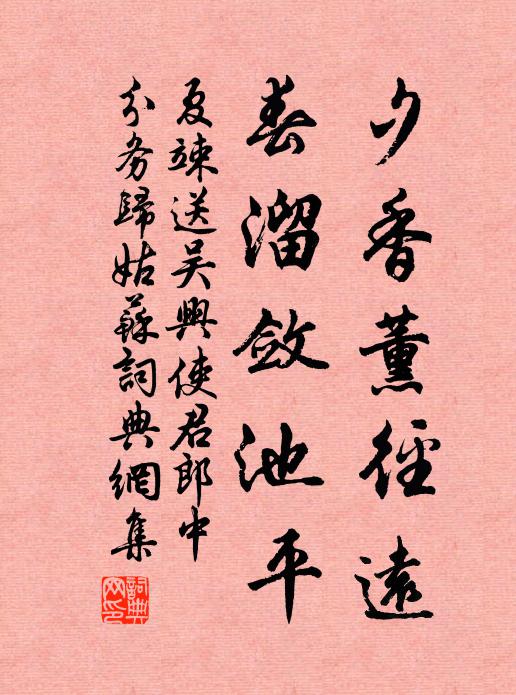 夕香薰徑遠
春溜斂池平
夏竦送吳興使君郎中
分务歸姑蘇詞典網集
詞典网印